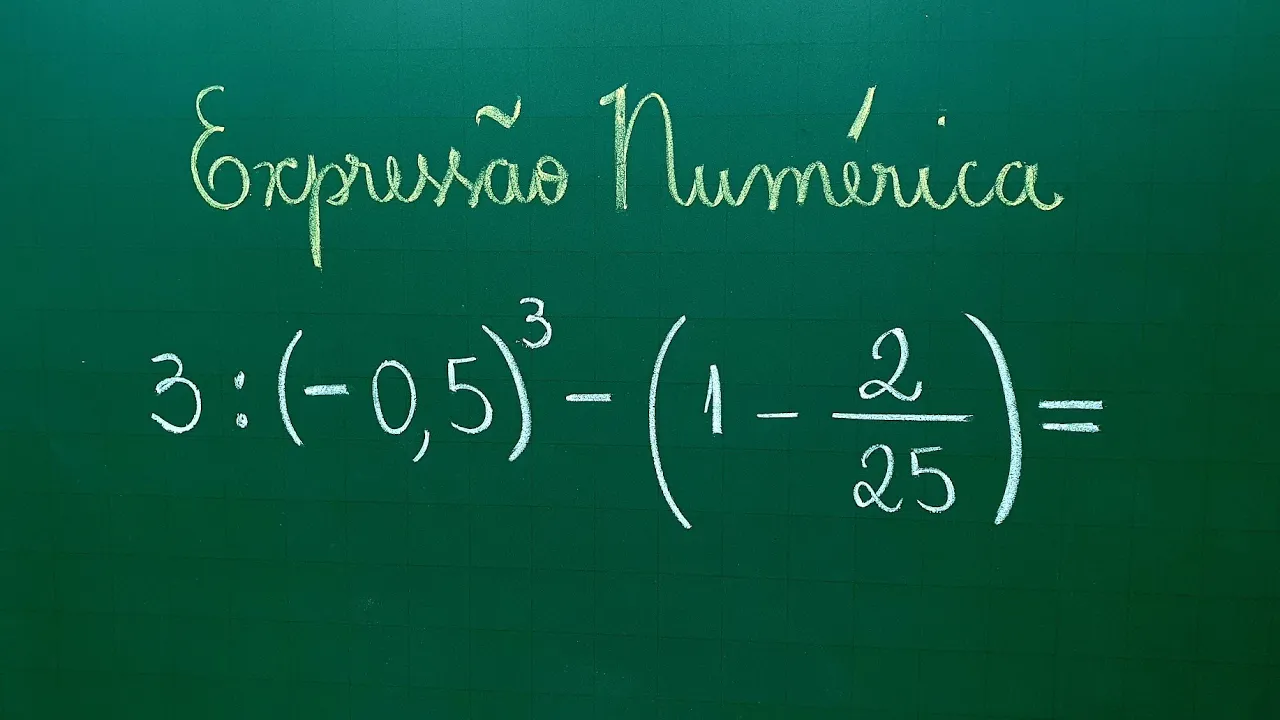 Expressão Numérica
3 : (- 0,5)³ - (1 - 2/25) =